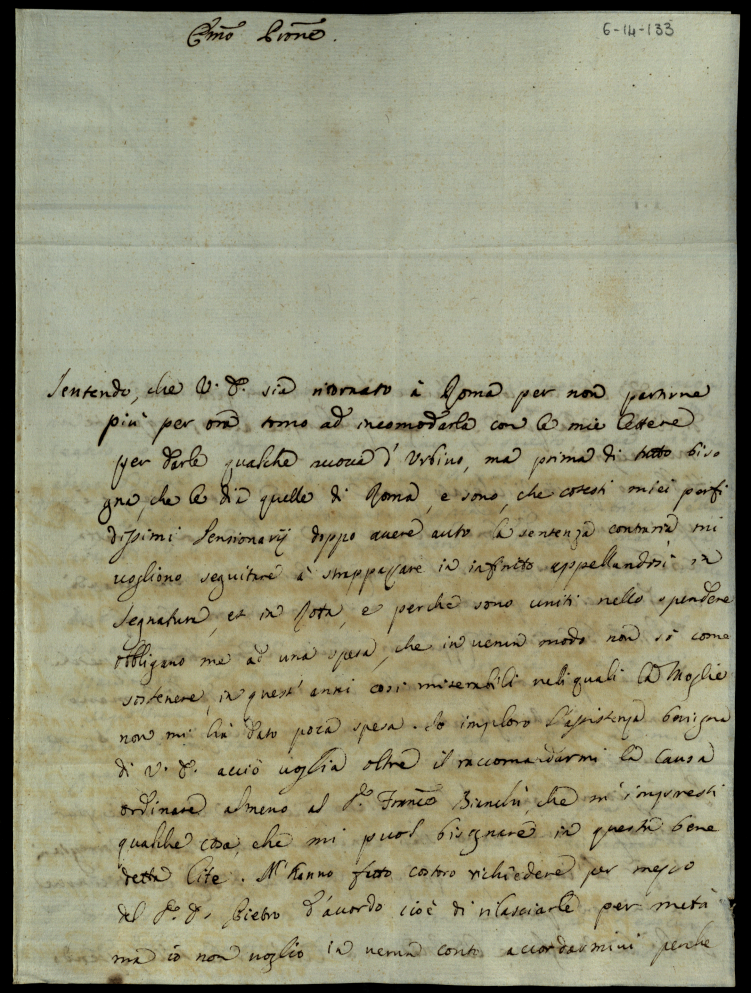 6-14-133
Sentendo, che V. S. sia ritornato à Roma per non partirne
più per ora torno ad incomodarla con le mie lettere
per darle qualche nuova d'Urbino, ma prima di tutto biso
gna, che le dia quelle di Roma, e sono, che cotesti miei perfi
dissimi Pensionarij doppo avere auto la sentenza contraria mi
vogliono seguitare à strappazzare in infinito appellandosi in
Segnatura, et in Rota, e perche sono uniti nello spendere
obbligano me ad una spesa, che in verun modo non sò come
sostenere, in quest'anni così miserabili neli quali la Moglie
non mi hà dato poca spesa. Io imploro l'assistenza benigna
di V. S. acciò voglia oltre il raccomandarmi la Causa
ordinare almeno al Sr. Franco Bianchi, che m'impresti
qualche cosa, che mi puol bisognare in questa bene
detta lite. M'hanno fatto costoro richiedere per mezzo
del Sr. D. Pietro d'acordo cioè di rilasciarle per metà
ma io non voglio in verun conto accordarmivi perche